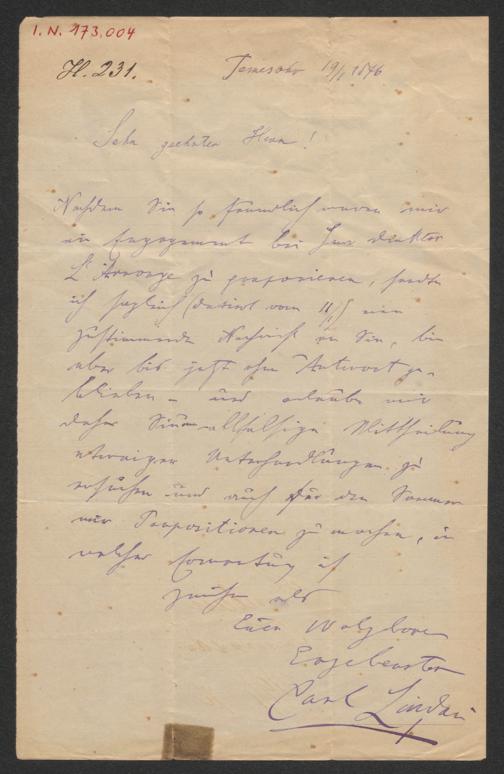 I. N. 173,004
H. 231.
Temesvár 19/ 1876
Sehr geehrter Herr!
Nachdem Sie so freundlich waren mir
ein Engagement bei Herr Direktor
L'Arronge zu proponieren, sandte
ich sogleich (datirt vom 11/ eine
zustimmende Nachricht an Sie, bin
aber bis jetzt ohne Antwort ge-
blieben – und erlaube mir
daher Sie um allfällige Mittheilung
etwaiger Unterhandlungen zu
ersuchen und auch für den Sommer
mir Propositionen zu machen, in
welcher Erwartung ich
zeichne als
Euer Wohlgeboren
Ergebenster
Carl Lindau